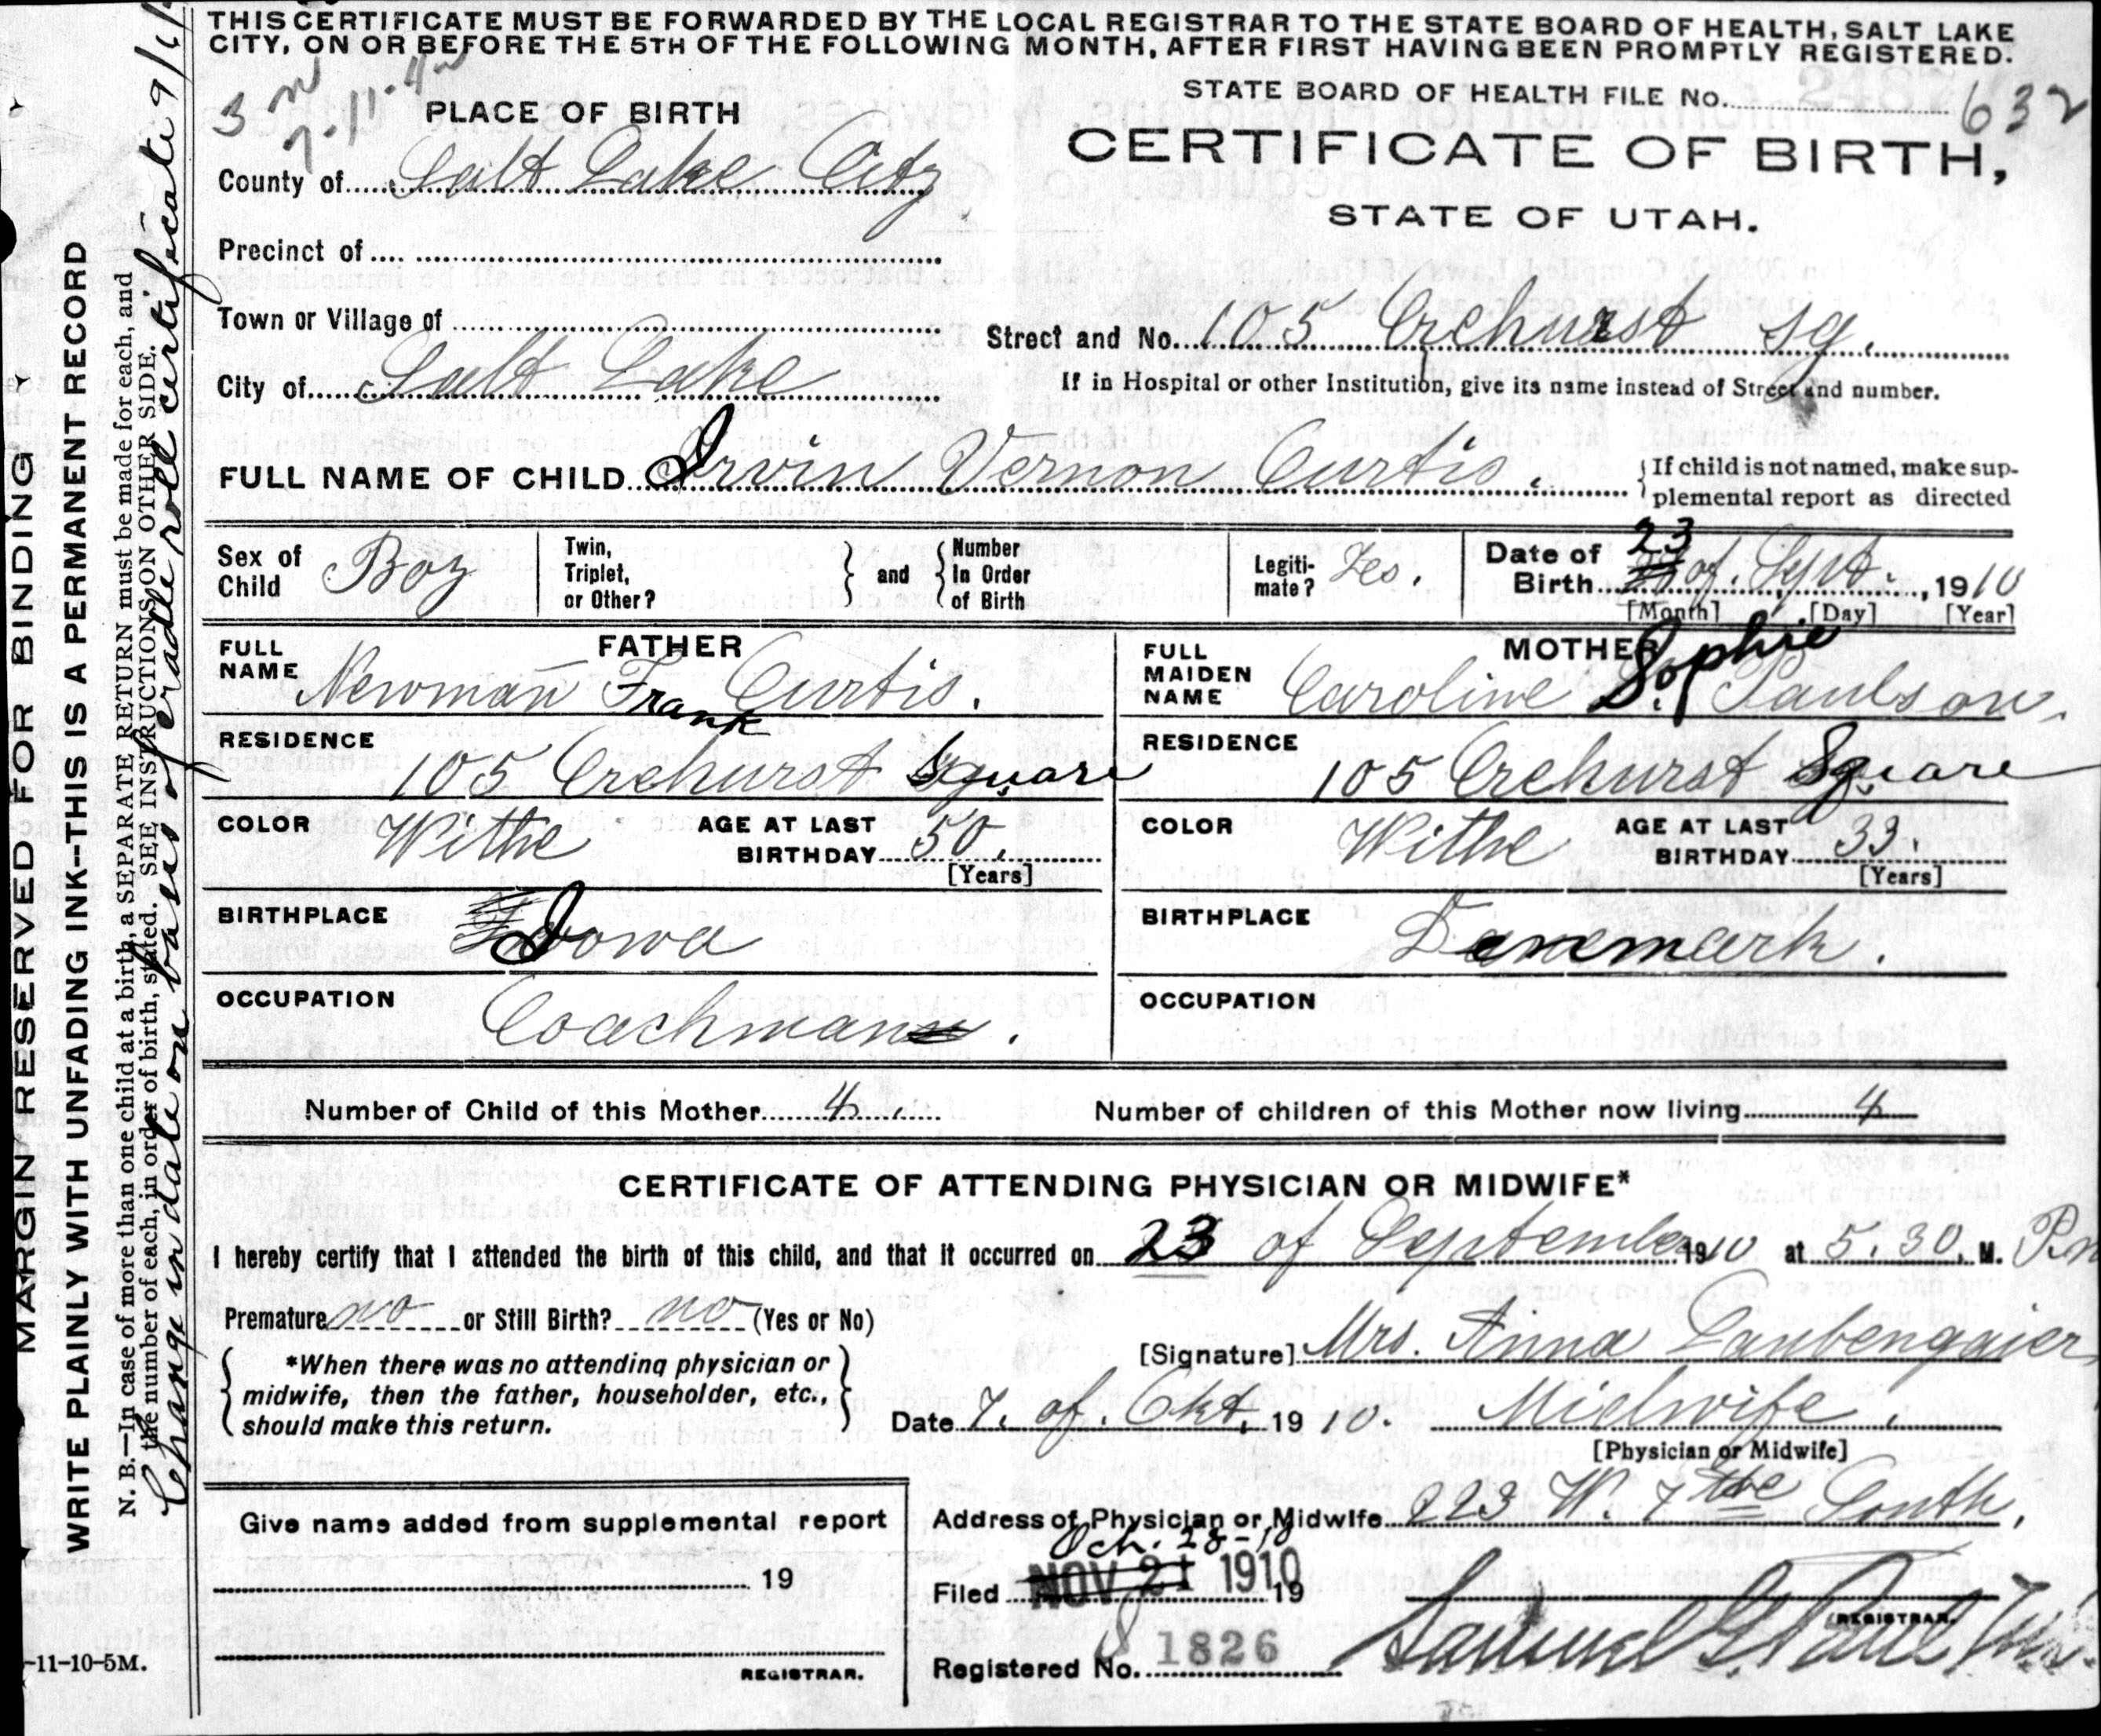 THIS CERTIFICATE MUST BE FORWARDED BY THE LOCAL REGISTRAR TO THE STATE BOARD OF HEALTH, SALT LAKE
CITY, ON OR BEFORE THE 5TH OF THE FOLLOWING MONTH, AFTER FIRST HAVING BEEN PROMPTLY REGISTERED.
STATE BOARD OF HEALTH FILE No. 632
PLACE OF BIRTH
CERTIFICATE OF BIRTH,
STATE OF UTAH.
County of Salt Lake City
Precinct of
Town or Village of
Street and No. 105 Orehurst Sq.
City of Salt Lake
If in Hospital or other Institution, give its name instead of Street and number.
FULL NAME OF CHILD Irvin Vernon Curtis.
If child is not named, make sup-
plemental report as directed
Sex of Child Boy
Twin, Triplet, or Other?
and
Number In Order of Birth
Legiti-mate? Yes.
Date of Birth 23 of. Sept. , 1910
[Month] [Day] [Year]
FATHER
FULL NAME Newman Frank Curtis.
MOTHER
FULL MAIDEN NAME Caroline Sophie Paulson.
RESIDENCE 105 Orehurst Square
RESIDENCE 105 Orehurst Square
COLOR Withe
AGE AT LAST BIRTHDAY 50.
[Years]
COLOR Withe
AGE AT LAST BIRTHDAY 33.
[Years]
BIRTHPLACE Iowa
BIRTHPLACE Denemark.
OCCUPATION Coachman.
OCCUPATION
Number of Child of this Mother 4
Number of children of this Mother now living 4
CERTIFICATE OF ATTENDING PHYSICIAN OR MIDWIFE*
I hereby certify that I attended the birth of this child, and that it occurred on 23 of September 1910 at 5.30. M. P.m
Premature no or Still Birth? no (Yes or No)
[Signature] Mrs. Anna Laubengaier
*When there was no attending physician or
midwife, then the father, householder, etc.,
should make this return.
Date 7. of. Okt. 1910. Midwife.
[Physician or Midwife]
Address of Physician or Midwife 223 W. 7the South,
Give name added from supplemental report
19
REGISTRAR.
Och. 28-10
Filed NOV 21 1910 19
REGISTRAR.
Registered No. 1826
MARGIN RESERVED FOR BINDING
WRITE PLAINLY WITH UNFADING INK--THIS IS A PERMANENT RECORD
N. B.—In case of more than one child at a birth, a SEPARATE RETURN must be made for each, and
the number of each, in order of birth, stated. SEE INSTRUCTIONS ON OTHER SIDE.
Change in date on basis of cradle roll certificate
-11-10-5M.